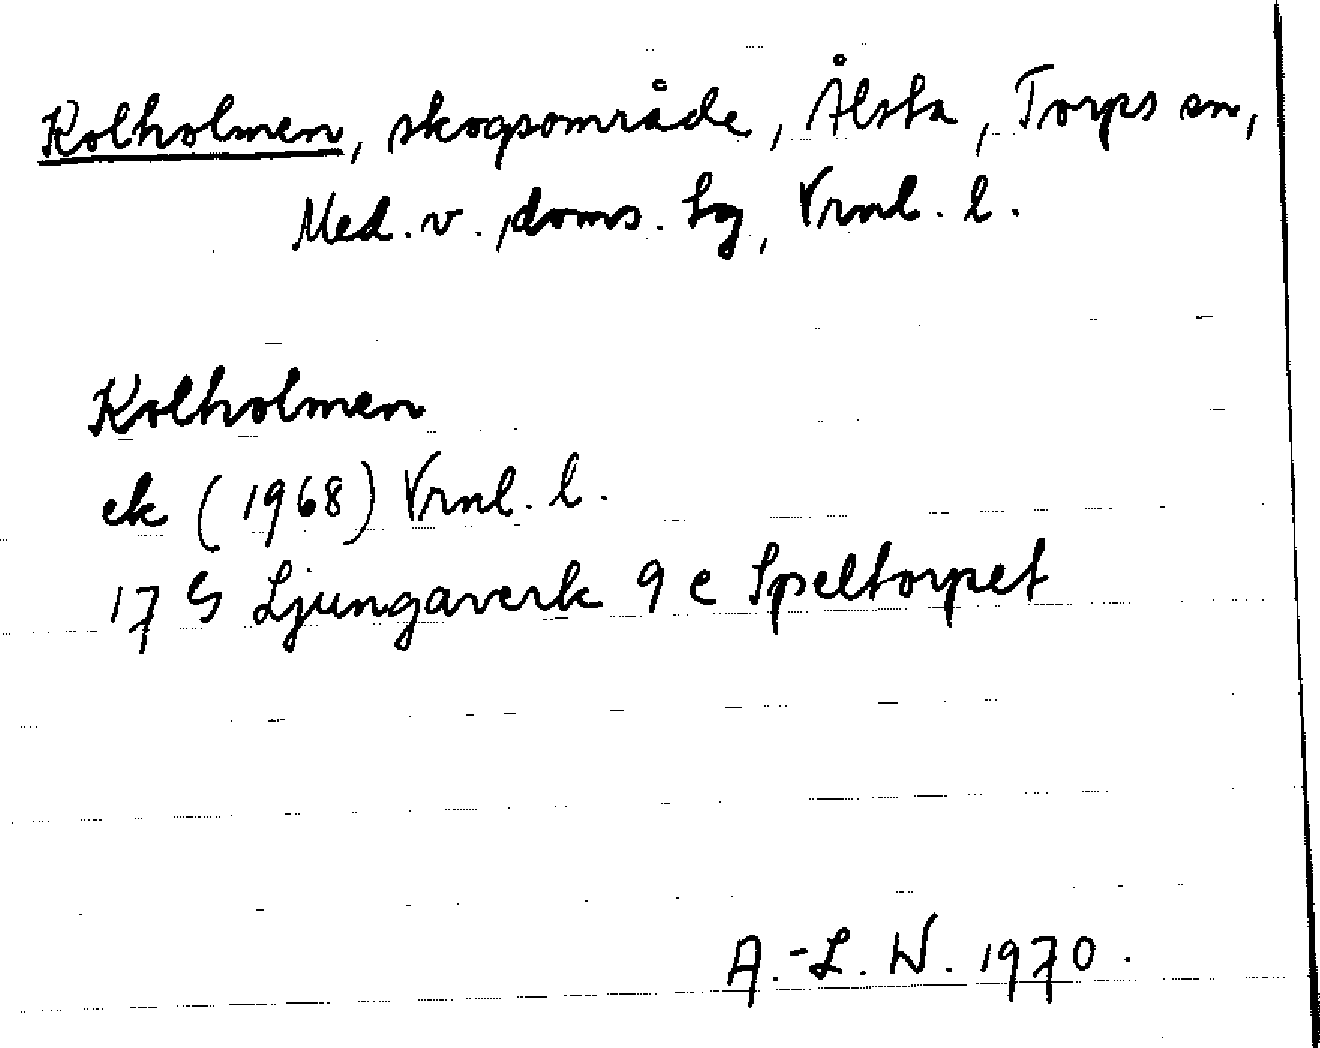 Kolholmen, skogsområde, Ålsta, Torps sn,
Med. v. doms. sg, Vrnl. l.
Kolholmen
ek (1968) Vrnl. l.
17 G Ljungaverk 9 e Speltorpet
A.-L. W. 1970.